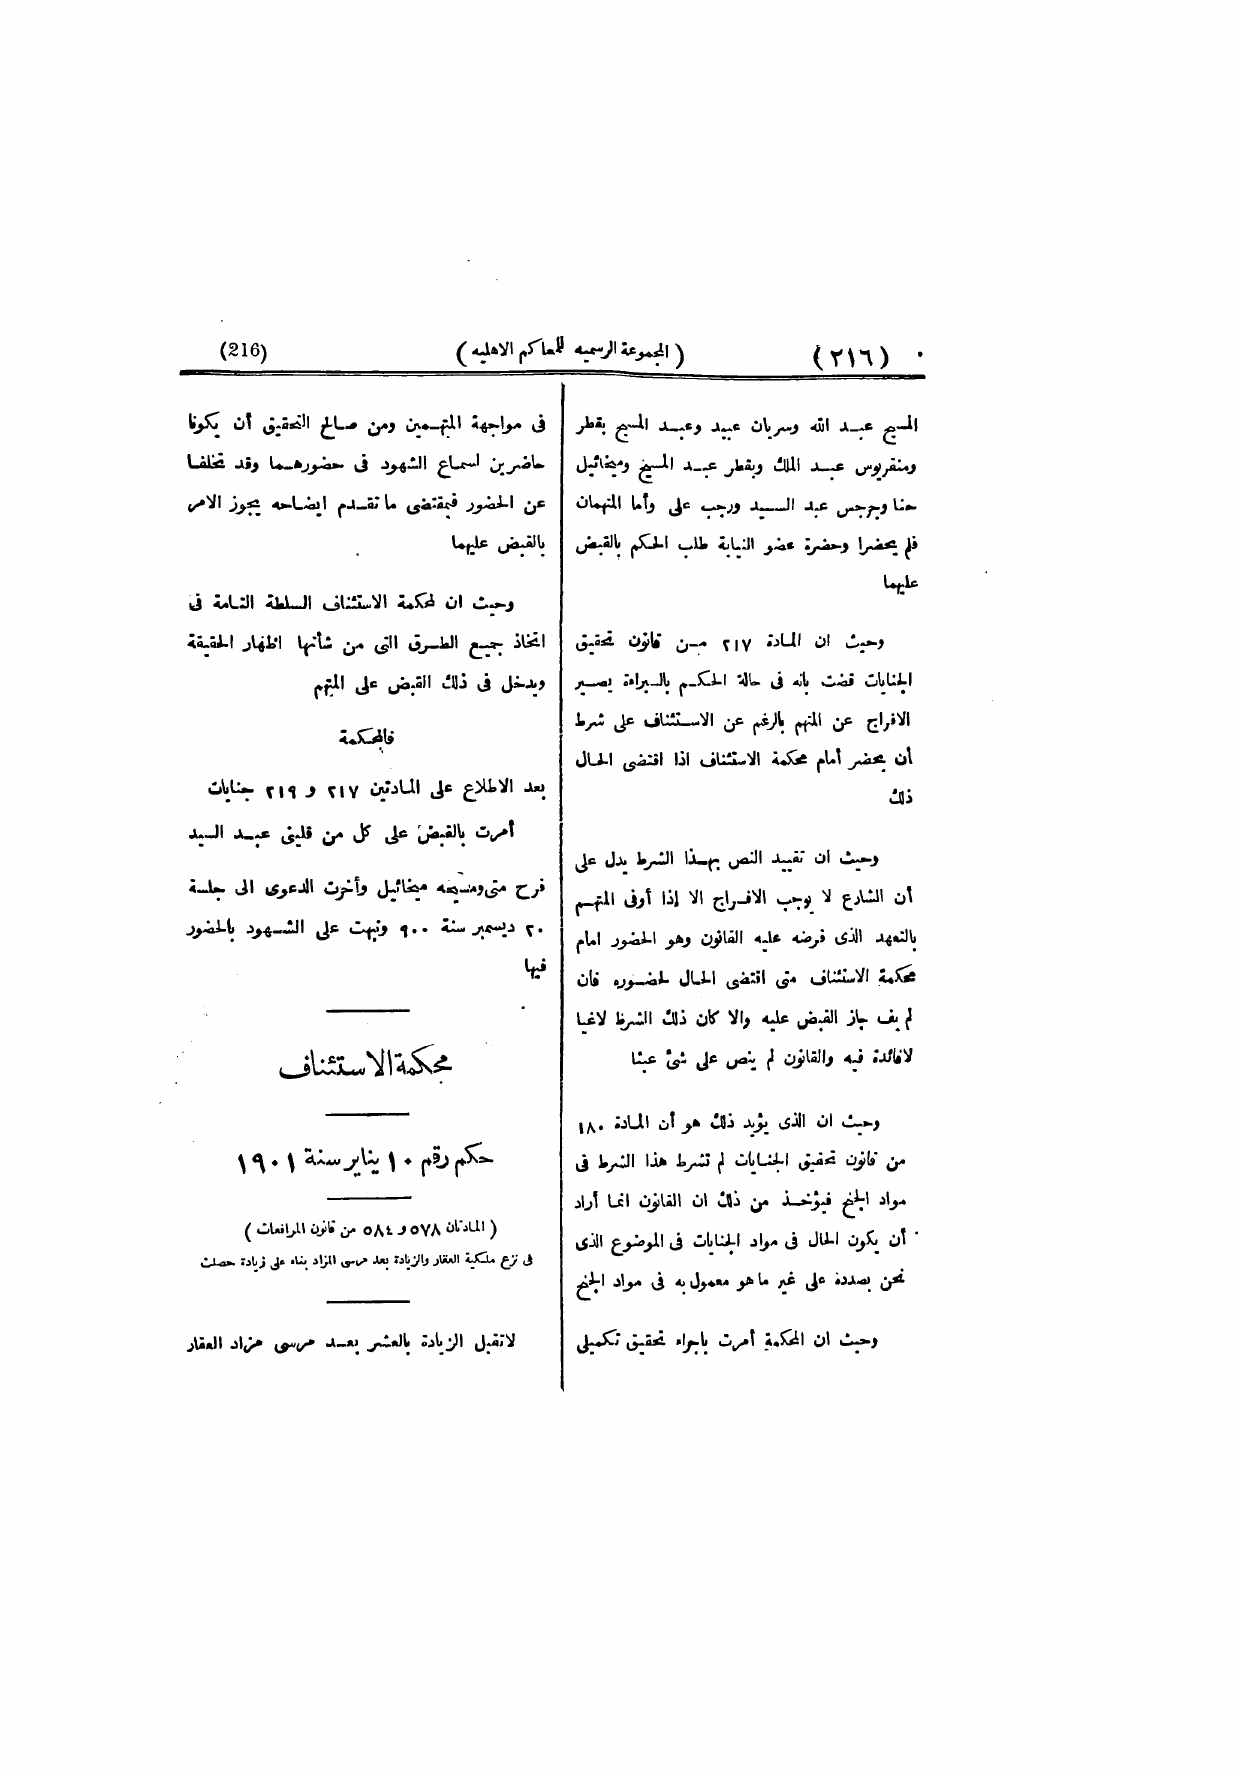 (٢١٦) (المجموعة الرسميه للمحاكم الاهليه) (216)
المسيح عبد الله وسريان عبيد وعبد المسيح بقطر
ومنقريوس عبد الملك وبقطر عبد المسيح وميخائيل
حنا وجرجس عبد السيد ورجب على وأما المتهمان
فلم يحضرا وحضرة عضو النيابة طلب الحكم بالقبض
عليهما
وحيث ان المادة ٢١٧ من قانون تحقيق
الجنايات قضت بانه فى حالة الحكم بالبراءة يصير
الافراج عن المتهم بالرغم عن الاستئناف على شرط
أن يحضر أمام محكمة الاستئناف اذا اقتضى الحال
ذلك
وحيث ان تقييد النص بهذا الشرط يدل على
أن الشارع لا يوجب الافراج الا إذا أوفى المتهم
بالتعهد الذى فرضه عليه القانون وهو الحضور امام
محكمة الاستئناف متى اقتضى الحال لحضوره فان
لم يف جاز القبض عليه والا كان ذلك الشرط لاغيا
لافائدة فيه والقانون لم ينص على شئ عبثا
وحيث ان الذى يؤيد ذلك هو أن المادة ١٨٠
من قانون تحقيق الجنايات لم تشرط هذا الشرط فى
مواد الجنح فيؤخذ من ذلك ان القانون انما أراد
أن يكون الحال فى مواد الجنايات فى الموضوع الذى
نحن بصدده على غير ما هو معمول به فى مواد الجنح
وحيث ان المحكمة أمرت باجراء تحقيق تكميلى
فى مواجهة المتهمين ومن صالح التحقيق أن يكونا
حاضرين اسماع الشهود فى حضورهما وقد تخلفا
عن الحضور فبمقتضى ما تقدم ايضاحه يجوز الامر
بالقبض عليهما
وحيث ان لمحكمة الاستئناف السلطة التامة فى
اتخاذ جميع الطرق التى من شأنها اظهار الحقيقة
ويدخل فى ذلك القبض على المتهم
فالمحكمة
بعد الاطلاع على المادتين ٢١٧ و ٢١٩ جنايات
أمرت بالقبض على كل من قلينى عبد السيد
فرح متى ومسيحه ميخائيل وأخرت الدعوى الى جلسة
٢٠ ديسمبر سنة ٩٠٠ ونبهت على الشهود بالحضور
فيها
محكمة الاستئناف
حكم رقم ١٠ يناير سنة ١٩٠١
(المادتان ٥٧٨ و ٥٨٤ من قانون المرافعات)
فى نزع ملكية العقار والزيادة بعد مرسى المزاد بناء على زيادة حصلت
لاتقبل الزيادة بالعشر بعد مرسى مزاد العقار